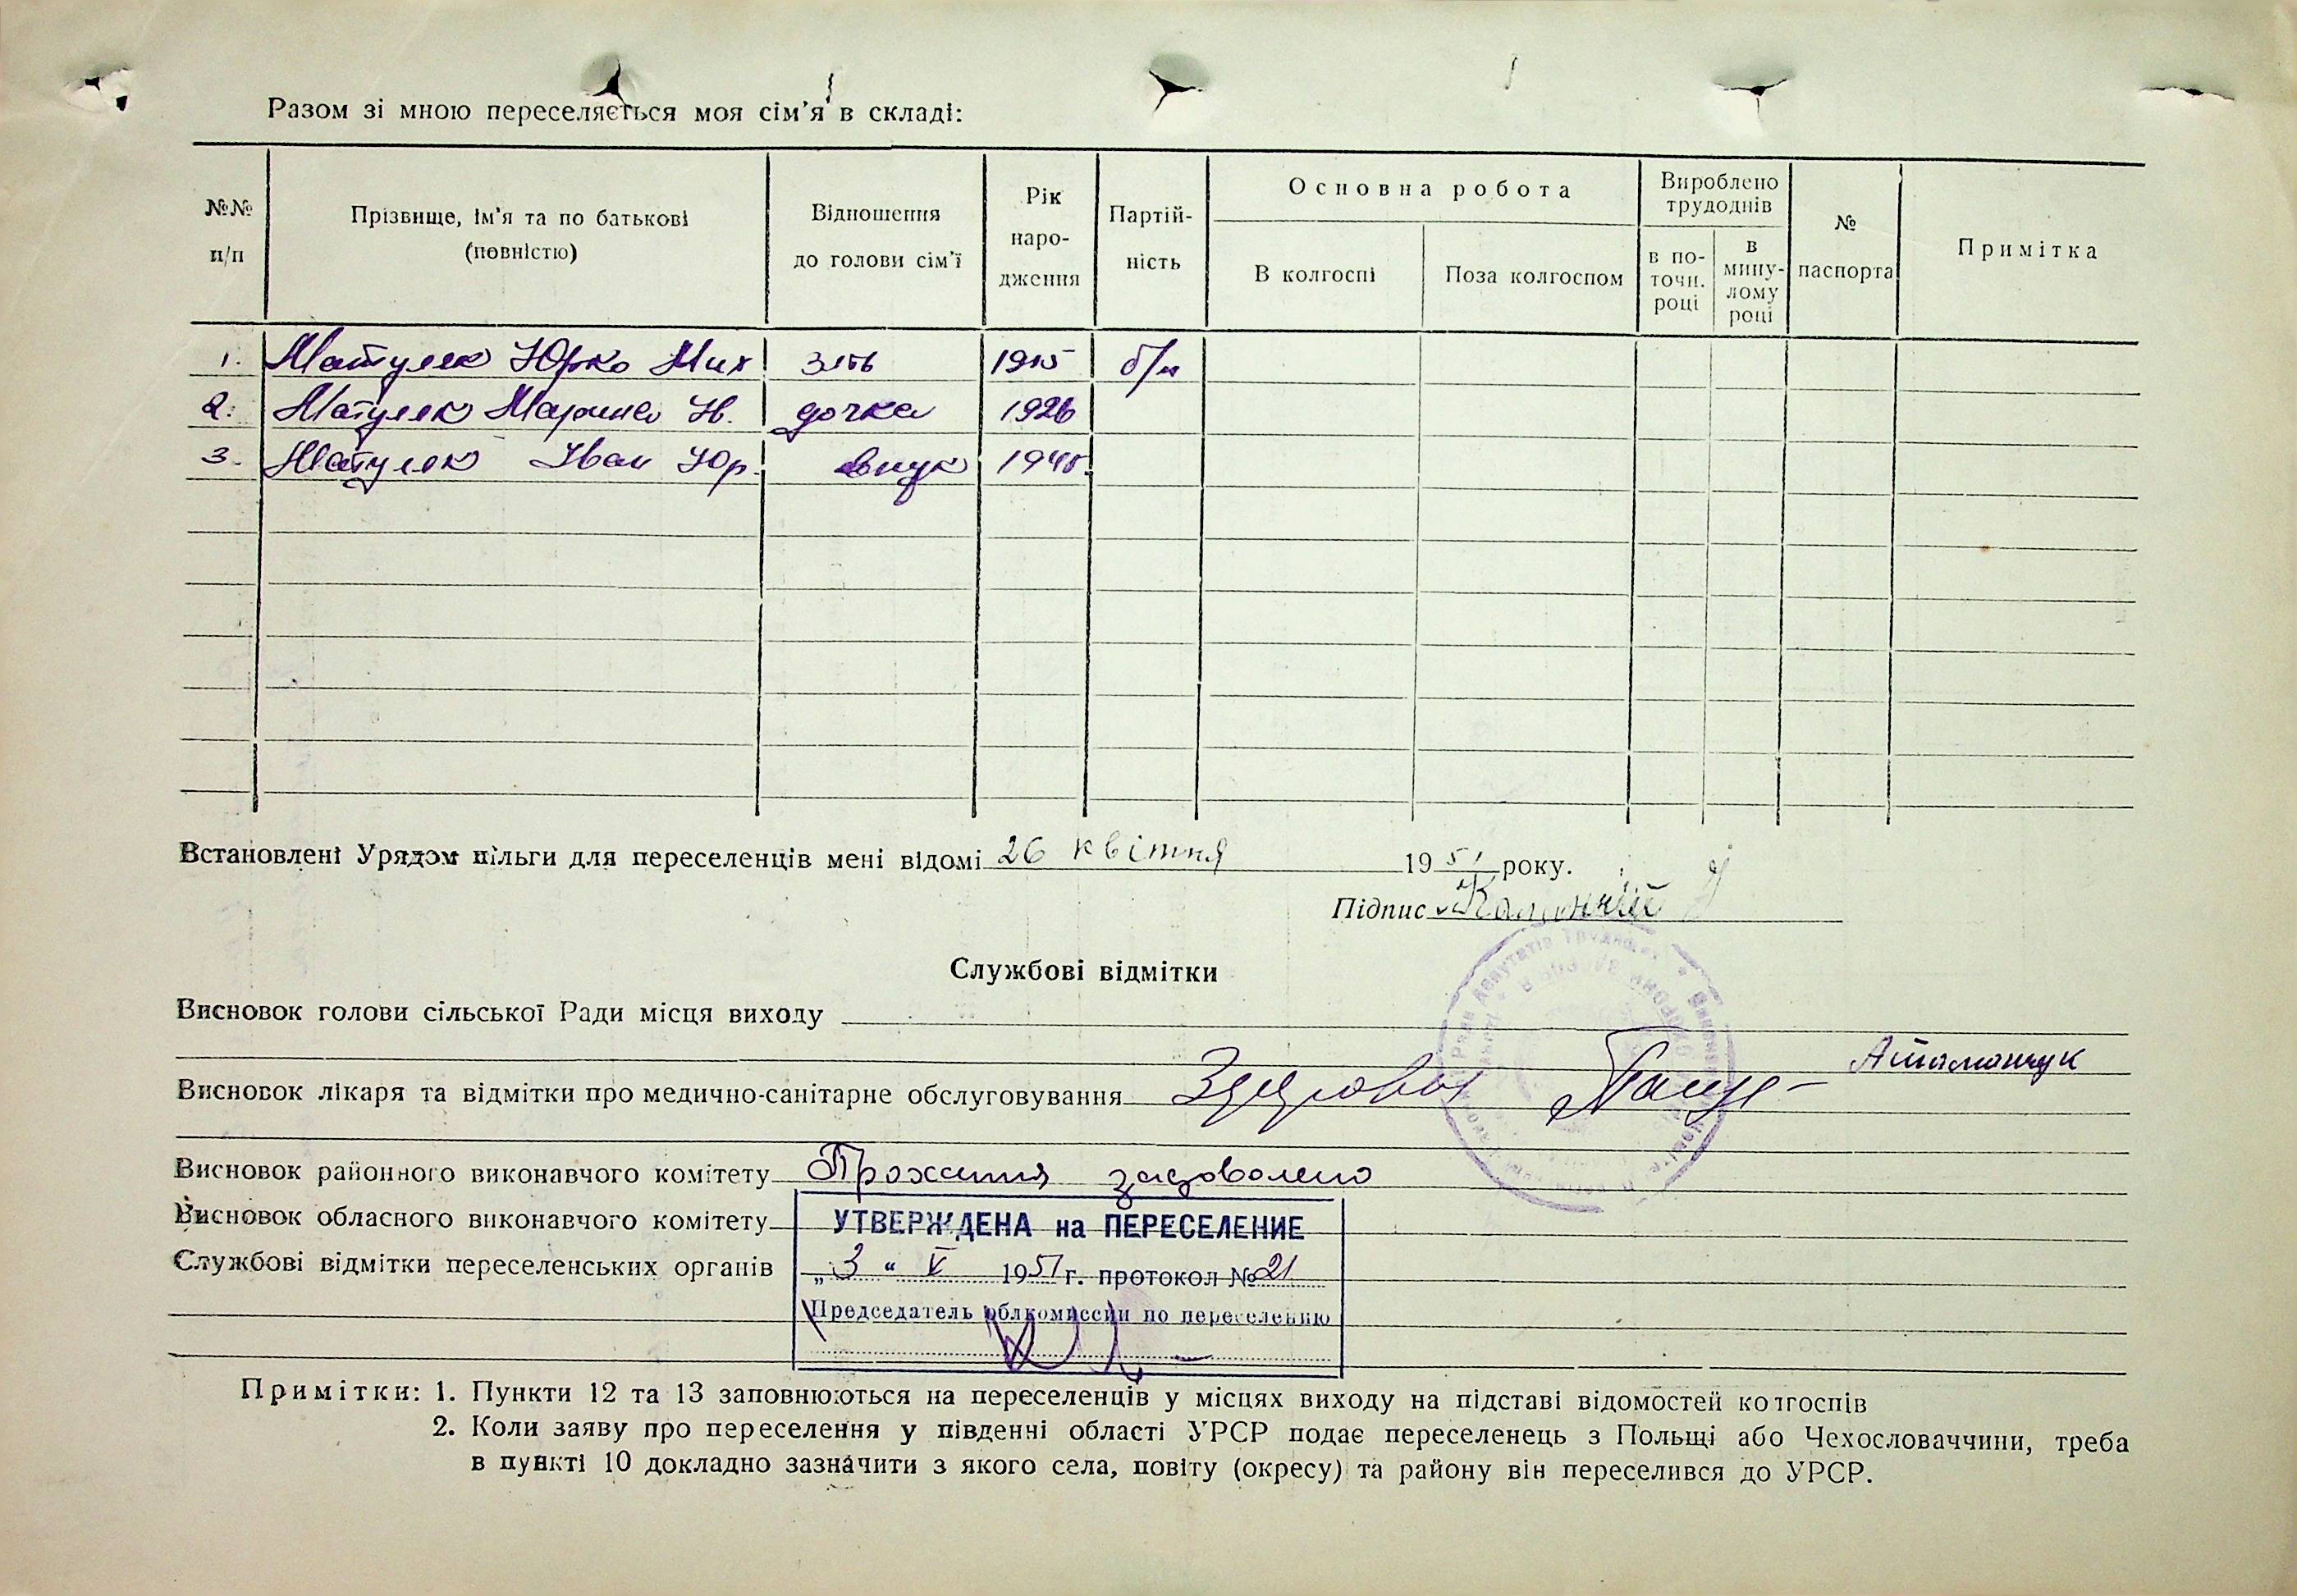 Разом зі мною переселяється моя сім'я в складі:
№№ п/п
Прізвище, ім'я та по батькові (повністю)
Відношення до голови сім'ї
Рік народження
Партійність
Основна робота
В колгоспі
Поза колгоспом
Вироблено трудоднів
в поточн. році
в минулому році
№ паспорта
Примітка
1. Матуляк Юрко Мих зять 1915 б/п
2. Матуляк Марина Н. дочка 1926
3. Матуляк Іван Юр. внук 1948
Встановлені Урядом пільги для переселенців мені відомі 26 квітня 1951 року.
Підпис
Службові відмітки
Висновок голови сільської Ради місця виходу
Атаманчук
Висновок лікаря та відмітки про медично-санітарне обслуговування Здорови
Висновок районного виконавчого комітету Прохання задоволено
Висновок обласного виконавчого комітету
УТВЕРЖДЕНА на ПЕРЕСЕЛЕНИЕ
Службові відмітки переселенських органів
„3“ V 1951 г. протокол №21
Председатель облкомиссии по переселению
Примітки: 1. Пункти 12 та 13 заповнюються на переселенців у місцях виходу на підставі відомостей колгоспів
2. Коли заяву про переселення у південні області УРСР подає переселенець з Польщі або Чехословаччини, треба
в пункті 10 докладно зазначити з якого села, повіту (окресу) та району він переселився до УРСР.